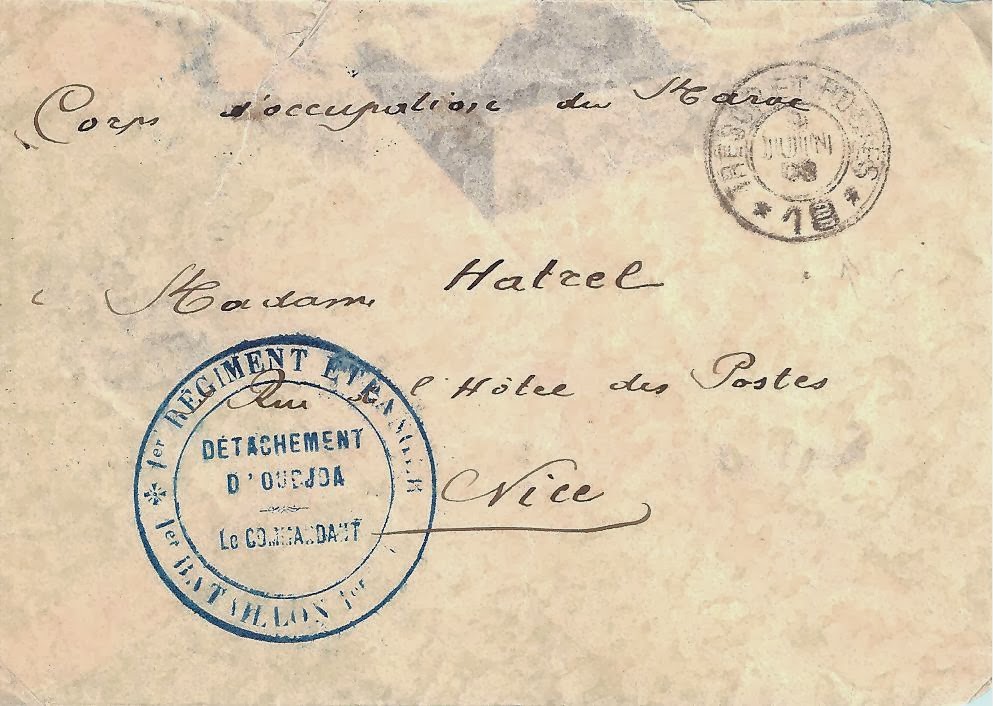 Corps d'occupation du Maroc
TRESOR ET POSTES
JUIN
08
* 18 *
Madame Hatrel
Rue de l'Hôtel des Postes
Nice
* 1er REGIMENT ETRANGER
DÉTACHEMENT
D'OUDJDA
Le COMMANDANT
1er BATAILLON 1er